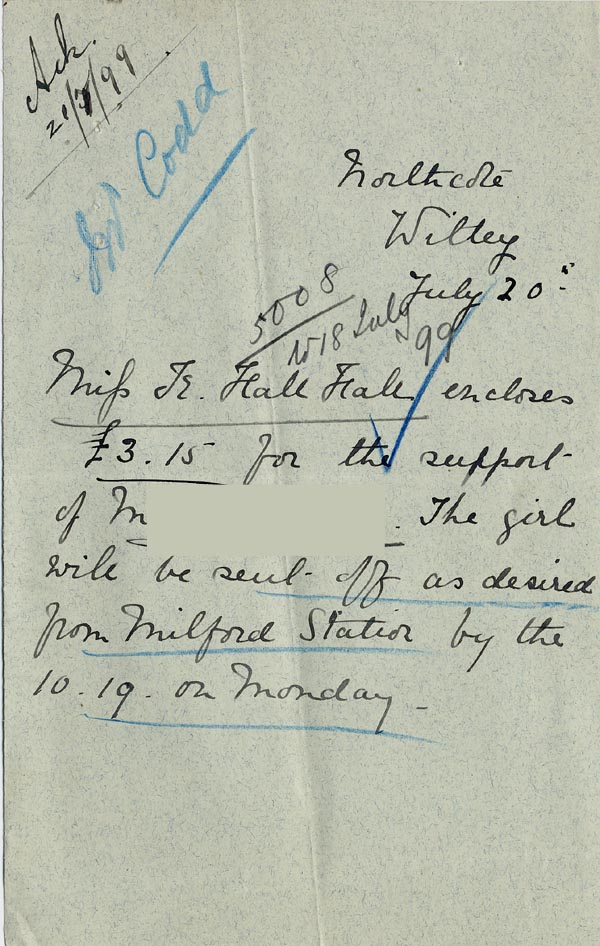 Ack.
21/7/99
Codd
Northcote
Witley
July 20th
5008
18 July
99
Miss E. Hall Hall encloses
£3.15 for the support
of M
. The girl
will be sent off as desired
from Milford Station by the
10.19. on Monday_